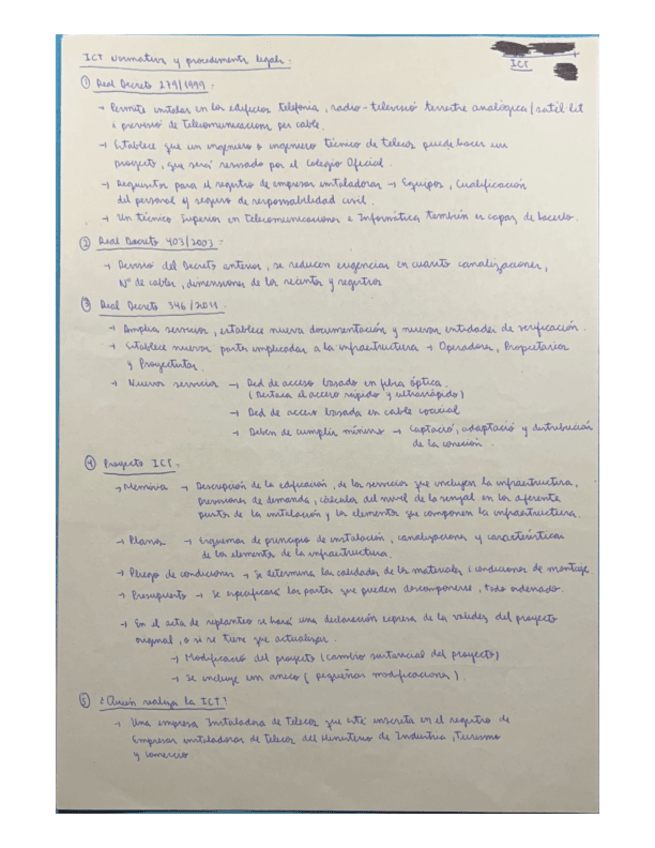 ICT Normativa y procedimiento legales:
ICT
① Real Decreto 279/1999
→ Permite instalar en los edificios telefonía, radio-televisió terrestre analógica/satèl·lit
i previsió de telecomunicacions per cable.
→ Establece que un ingeniero o ingeniero técnico de telecos puede hacer un
proyecto, que será revisado por el Colegio Oficial.
→ Requisitos para el registro de empresas instaladoras → Equipos, Cualificación
del personal y seguro de responsabilidad civil.
→ Un técnico Superior en telecomunicaciones e Informática también es capaz de hacerlo.
② Real Decreto 403/2003:
→ Revisió del Decreto anterior, se reducen exigencias en cuanto canalizaciones,
Nº de cables, dimensiones de los recintos y registros
③ Real Decreto 346/2011:
→ Amplia servicios, establece nueva documentación y nuevas entidades de verificación.
→ Establece nuevas partes implicadas a la infraestructura → Operadores, Propietarios
y Proyectistas.
→ Nuevos servicios → Red de acceso basado en fibra óptica.
(Destaca el acceso rápido y ultrarrápido)
→ Red de acceso basada en cable coaxial
→ Deben de cumplir mínimo → Captació, adaptació y distribución
de la conexión.
④ Proyecto ICT:
→ Memoria → Descripción de la edificación, de los servicios que incluyen la infraestructura,
previsiones de demanda, cálculos del nivel de la senyal en los diferente
puntos de la instalación y los elementos que componen la infraestructura.
→ Planos → Esquemas de principio de instalación, canalizaciones y características
de los elementos de la infraestructura.
→ Pliego de condiciones → Se determina las calidades de los materiales i condiciones de montaje
→ Presupuesto → Se especificará las partes que pueden descomponerse, todo ordenado.
→ En el acta de replanteo se hará una declaración expresa de la validez del proyecto
original, o si se tiene que actualizar.
→ Modificació del proyecto (cambio sustancial del proyecto)
→ Se incluye un anexo (pequeñas modificaciones).
⑤ ¿Quién realiza la ICT?
→ Una empresa Instaladora de Telecos que esté inscrita en el registro de
Empresas instaladoras de telecos del Ministerio de Industria, Turismo
y comercio